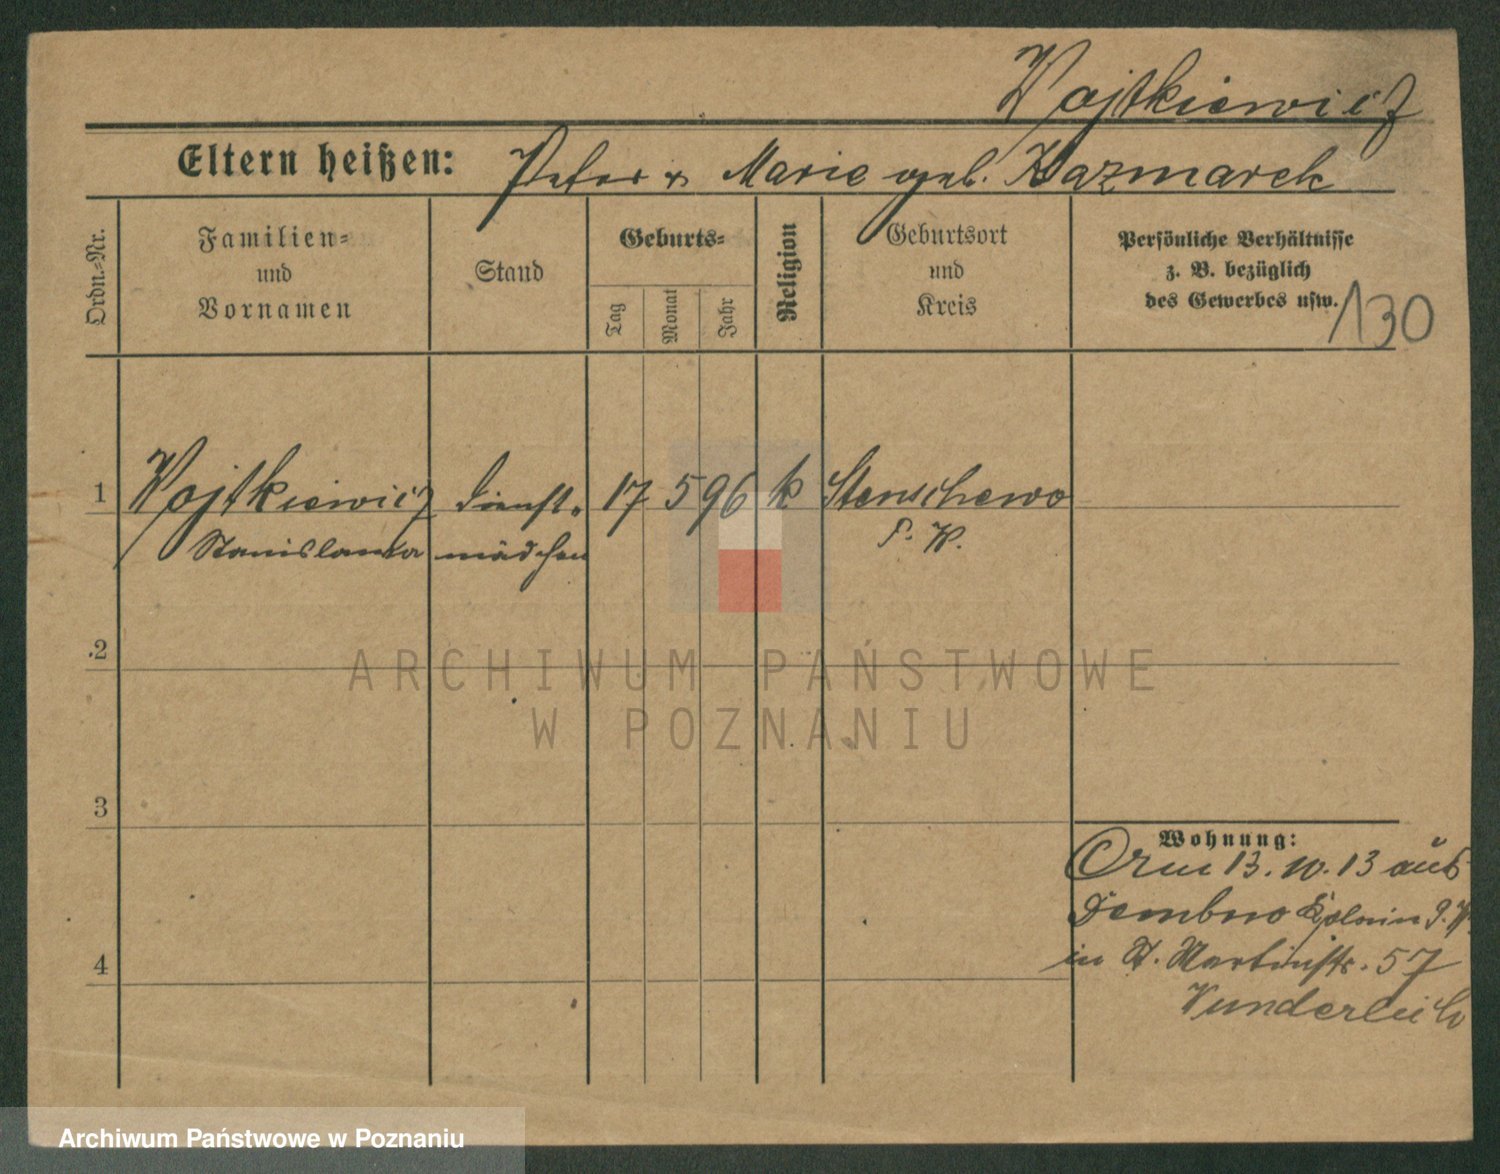 Wojtkiewicz
Eltern heißen: Peter u Marie geb. Kazmarek
Ordn.-Nr.
Familien-
und
Vornamen
Stand
Geburts-
Tag
Monat
Jahr
Religion
Geburtsort
und
Kreis
Persönliche Verhältnisse
z. B. bezüglich
des Gewerbes usw.
130
1 Wojtkiewicz Dienst- 17 5 96 k Stenschewo
Stanislawa mädchen P. W.
2
3
4
Wohnung:
13. 10. 13 aus
Dembno P. W.
in St. Martinstr. 57
Wunderlich
ARCHIWUM PAŃSTWOWE
W POZNANIU
Archiwum Państwowe w Poznaniu